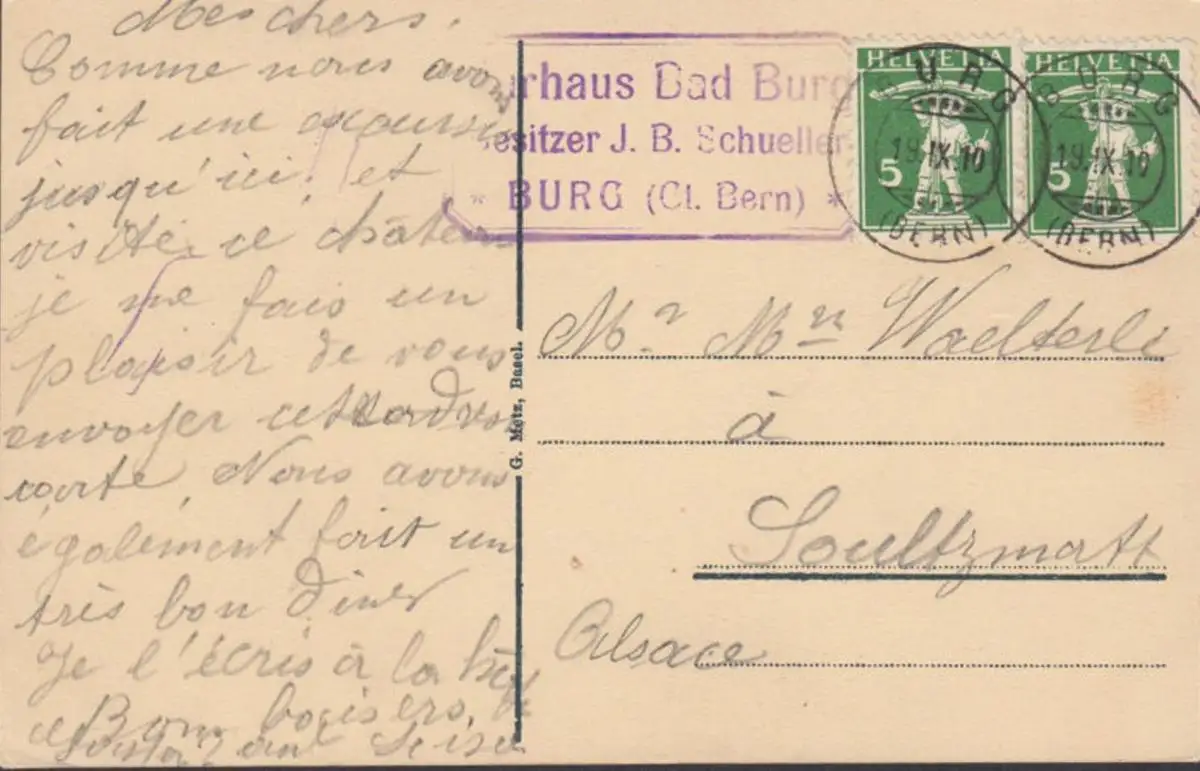 Mes chers.
Comme nous avons
fait une excursion
jusqu'ici et
visité ce château
je me fais un
plaisir de vous
envoyer cette
carte Nous avons
également fait un
très bon diner
Je l'écris à la hâte
Bons baisers,
G. Metz, Basel.
urhaus Bad Burg
esitzer J. B. Schueller
* BURG (Ct. Bern) *
HELVETIA
5
HELVETIA
5
BURG
19.IX.10
(BERN)
BURG
19.IX.10
(BERN)
Mr Mn Waelterlé
à
Soultzmatt
Alsace